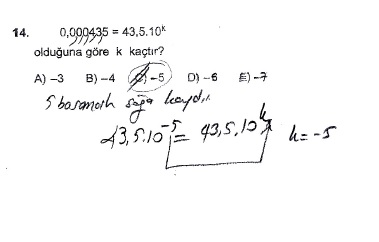 14. 0,000435 = 43,5.10ᵏ
olduğuna göre k kaçtır?
A) –3 B) –4 C) –5 D) –6 E) –7
5 basamak sağa kaydır.
43,5.10⁻⁵ = 43,5.10ᵏ k = -5